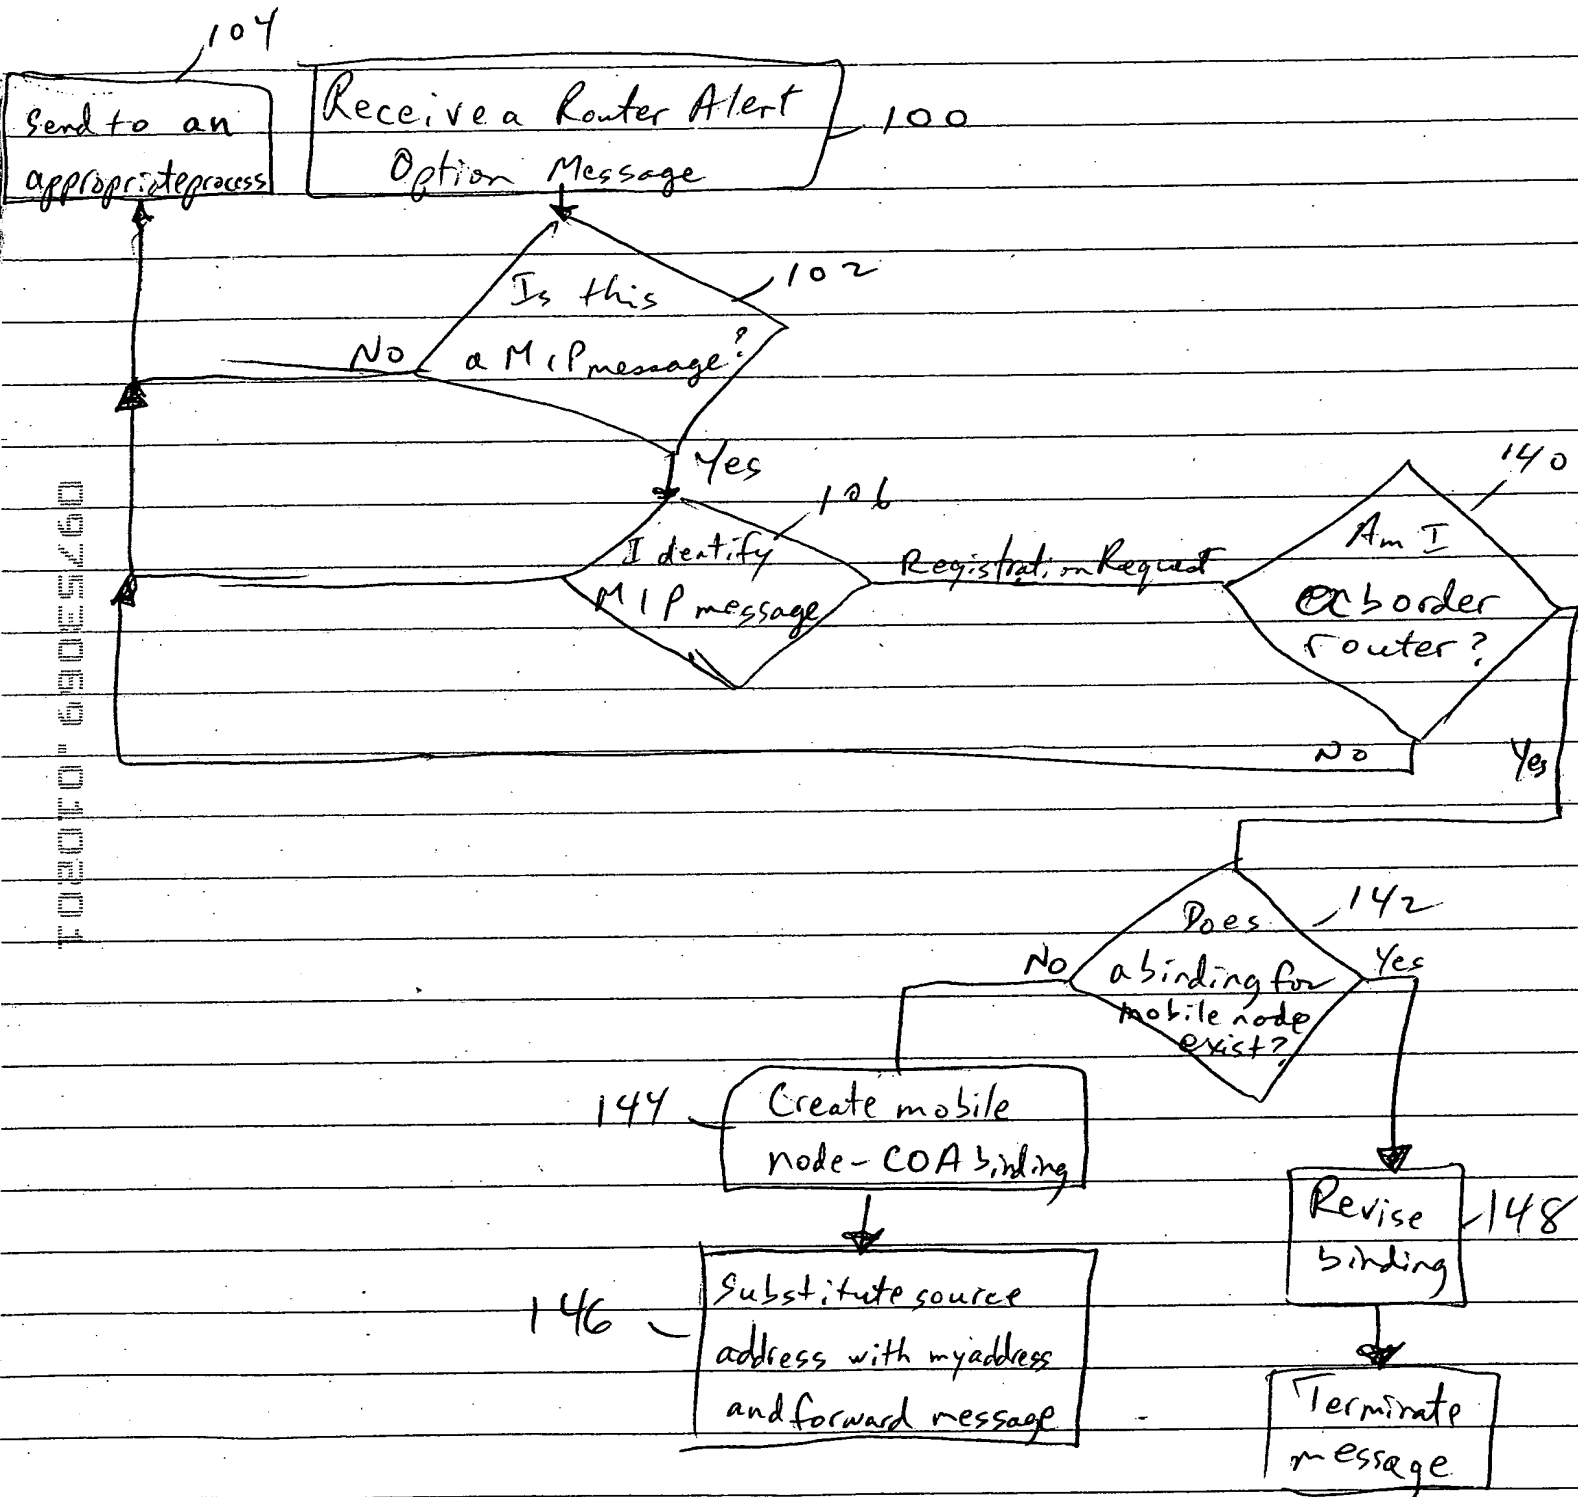 104
Send to an
appropriate process
Receive a Router Alert
Option Message
100
Is this
a MIP message?
102
No
Yes
106
Identify
MIP message
Registration Request
140
Am I
a border
router?
No
Yes
142
Does
a binding for
mobile node
exist?
No
Yes
144
Create mobile
node-COA binding
Revise
binding
148
146
Substitute source
address with my address
and forward message
Terminate
message
09753069.010201